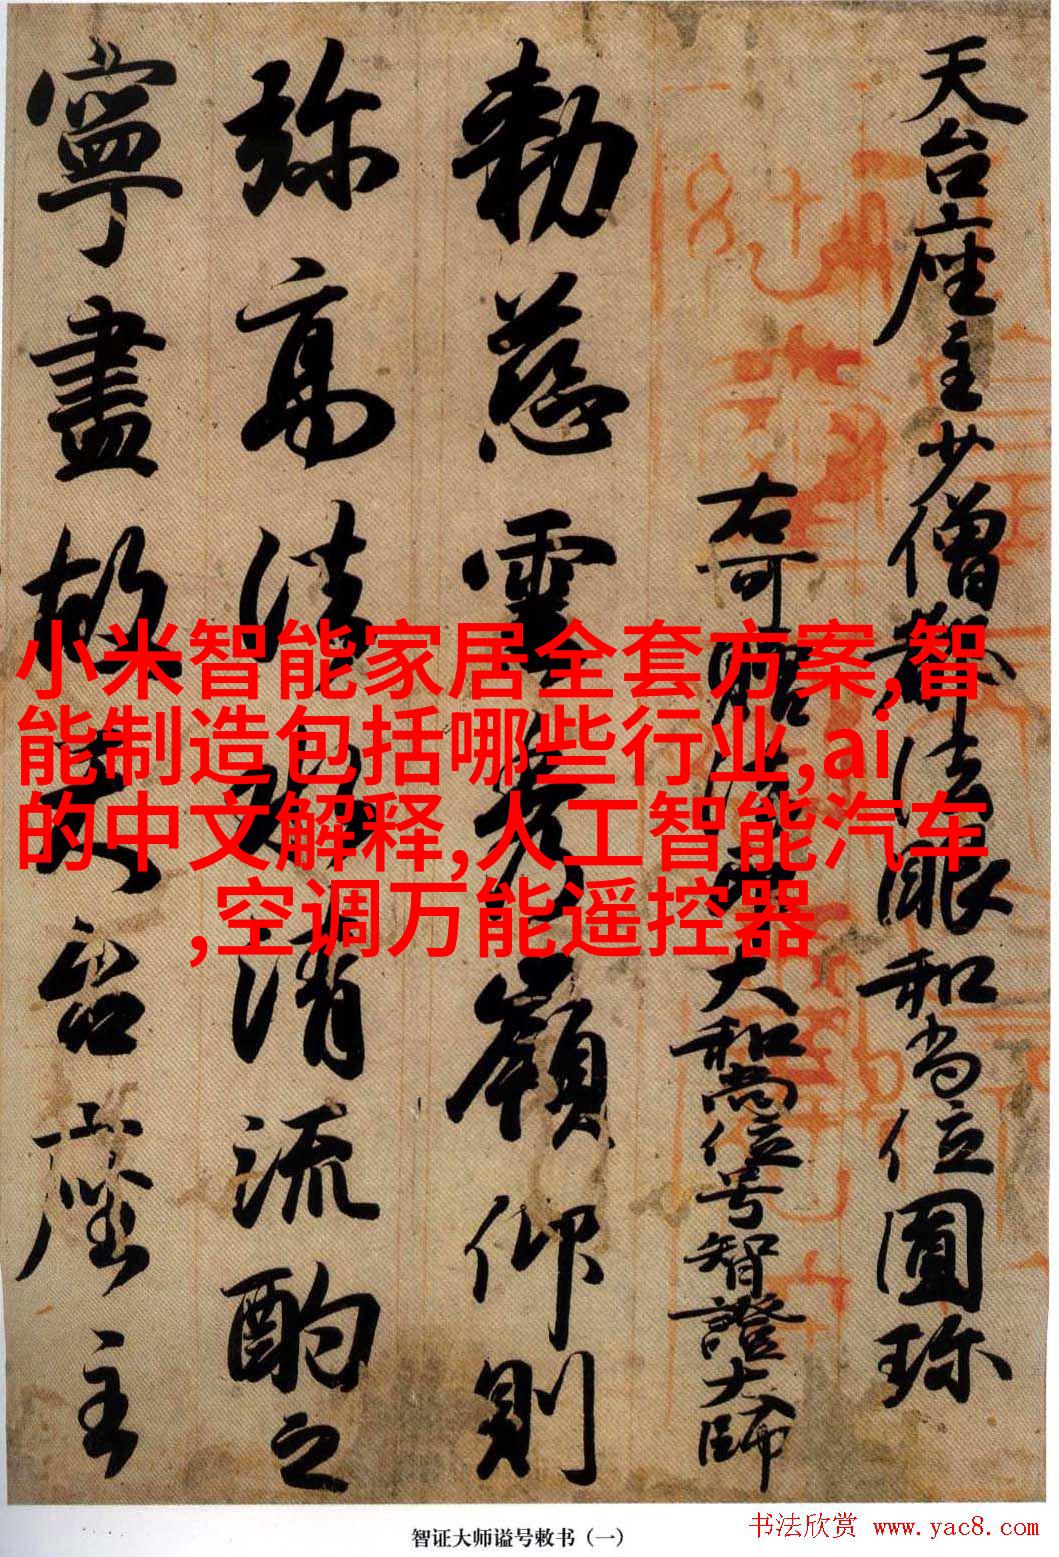 天台座主少僧都法眼和尚位圓珍
右可贈法印大和尚位号智證大師
勅慈雲秀嶺仰則
弥高法水清流酌之
寧盡故天台座主
小米智能家居全套方案,智
能制造包括哪些行业,ai
的中文解释,人工智能汽车
,空调万能遥控器
智证大师谥号敕书（一）
书法欣赏 www.yac8.com